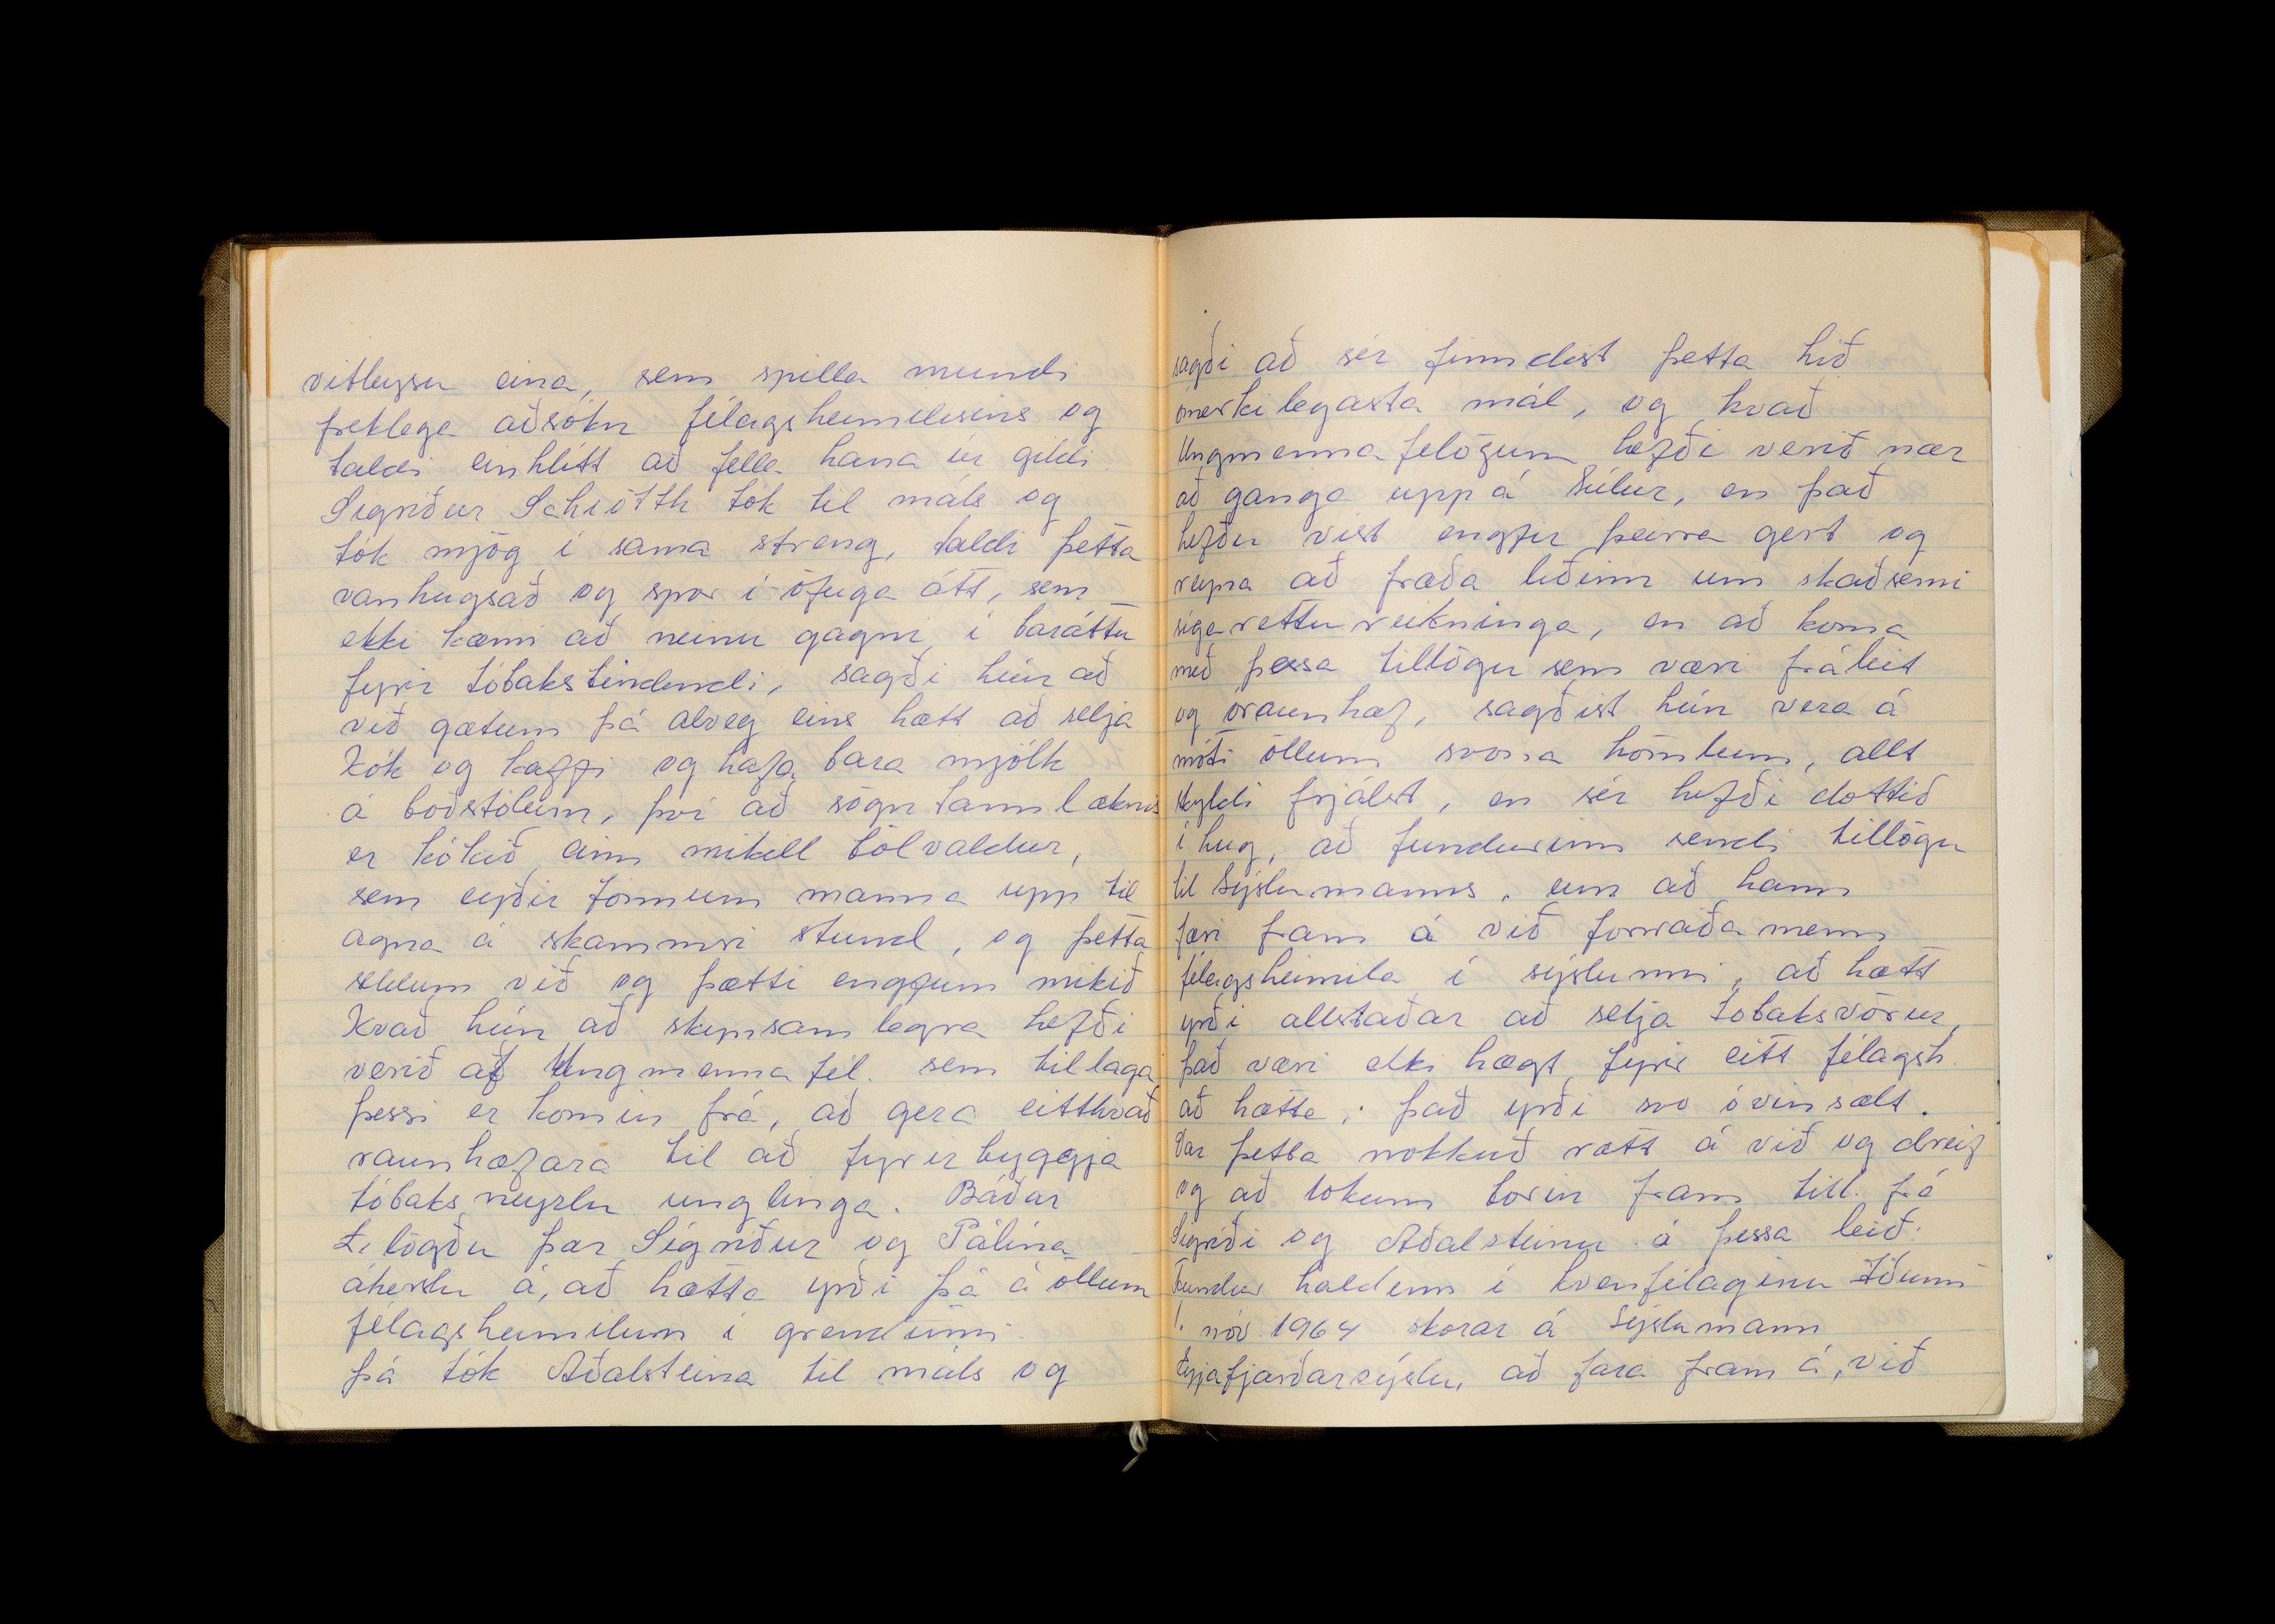 vitleysu eina, sem spilla mundi
fretlega aðsókn félagsheimilisins og
taldi einhlítt að fella hana úr gildi
Sigríður Schiöth tók til máls og
tók mjög í sama streng, taldi þetta
vanhugsað og spor í öfuga átt, sem
ekki kæmi að neinu gagni í baráttu
fyrir tóbaksbindindi, sagði hún að
við gætum þá alveg eins hætt að selja
Kók og kaffi og hafa bara mjólk
á boðstólum, því að sögn tannlæknis
er kókið einn mikill bölvaldur,
sem eyðir tönnum manna upp til
agna á skammri stund, og þetta
seldum við og þætti engum mikið
Kvað hún að skynsamlegra hefði
verið af Ungmennafél. sem tillaga
þessi er komin frá, að gera eitthvað
raunhæfara til að fyrirbyggja
tóbaksneyzlu unglinga. Báðar
lögðu þær Sigríður og Pálína
áherslu á, að hætta yrði þá á öllum
félagsheimilum í grendinni
þá tók Aðalsteina til máls og
sagði að sér finndist þetta hið
ómerkilegasta mál, og kvað
Ungmennafelögum hefði verið nær
að ganga upp á Súlur, en það
hefðu víst engir þeirra gert og
reyna að fræða lýðinn um skaðsemi
sigarettureikninga, en að koma
með þessa tillögu sem væri fráleit
og óraunhæf, sagðist hún vera á
móti öllum svona hömlum, allt
skyldi frjálst, en sér hefði dottið
í hug, að fundurinn sendi tillögu
til Sýslumanns, um að hann
færi fram á við forráðamenn
félagsheimila í sýslunni, að hætt
yrði allstaðar að selja tobaksvörur,
það væri ekki hægt fyrir eitt félagsh.
að hætta, það yrði svo óvinsælt.
Var þetta nokkuð rætt á við og dreif
og að lokum borin fram till. frá
Sigríði og Aðalsteinu á þessa leið:
Fundur haldinn í kvenfélaginu Iðunni
1. nóv. 1964 skorar á Sýslumann
Eyjafjarðarsýslu, að fara fram á, við